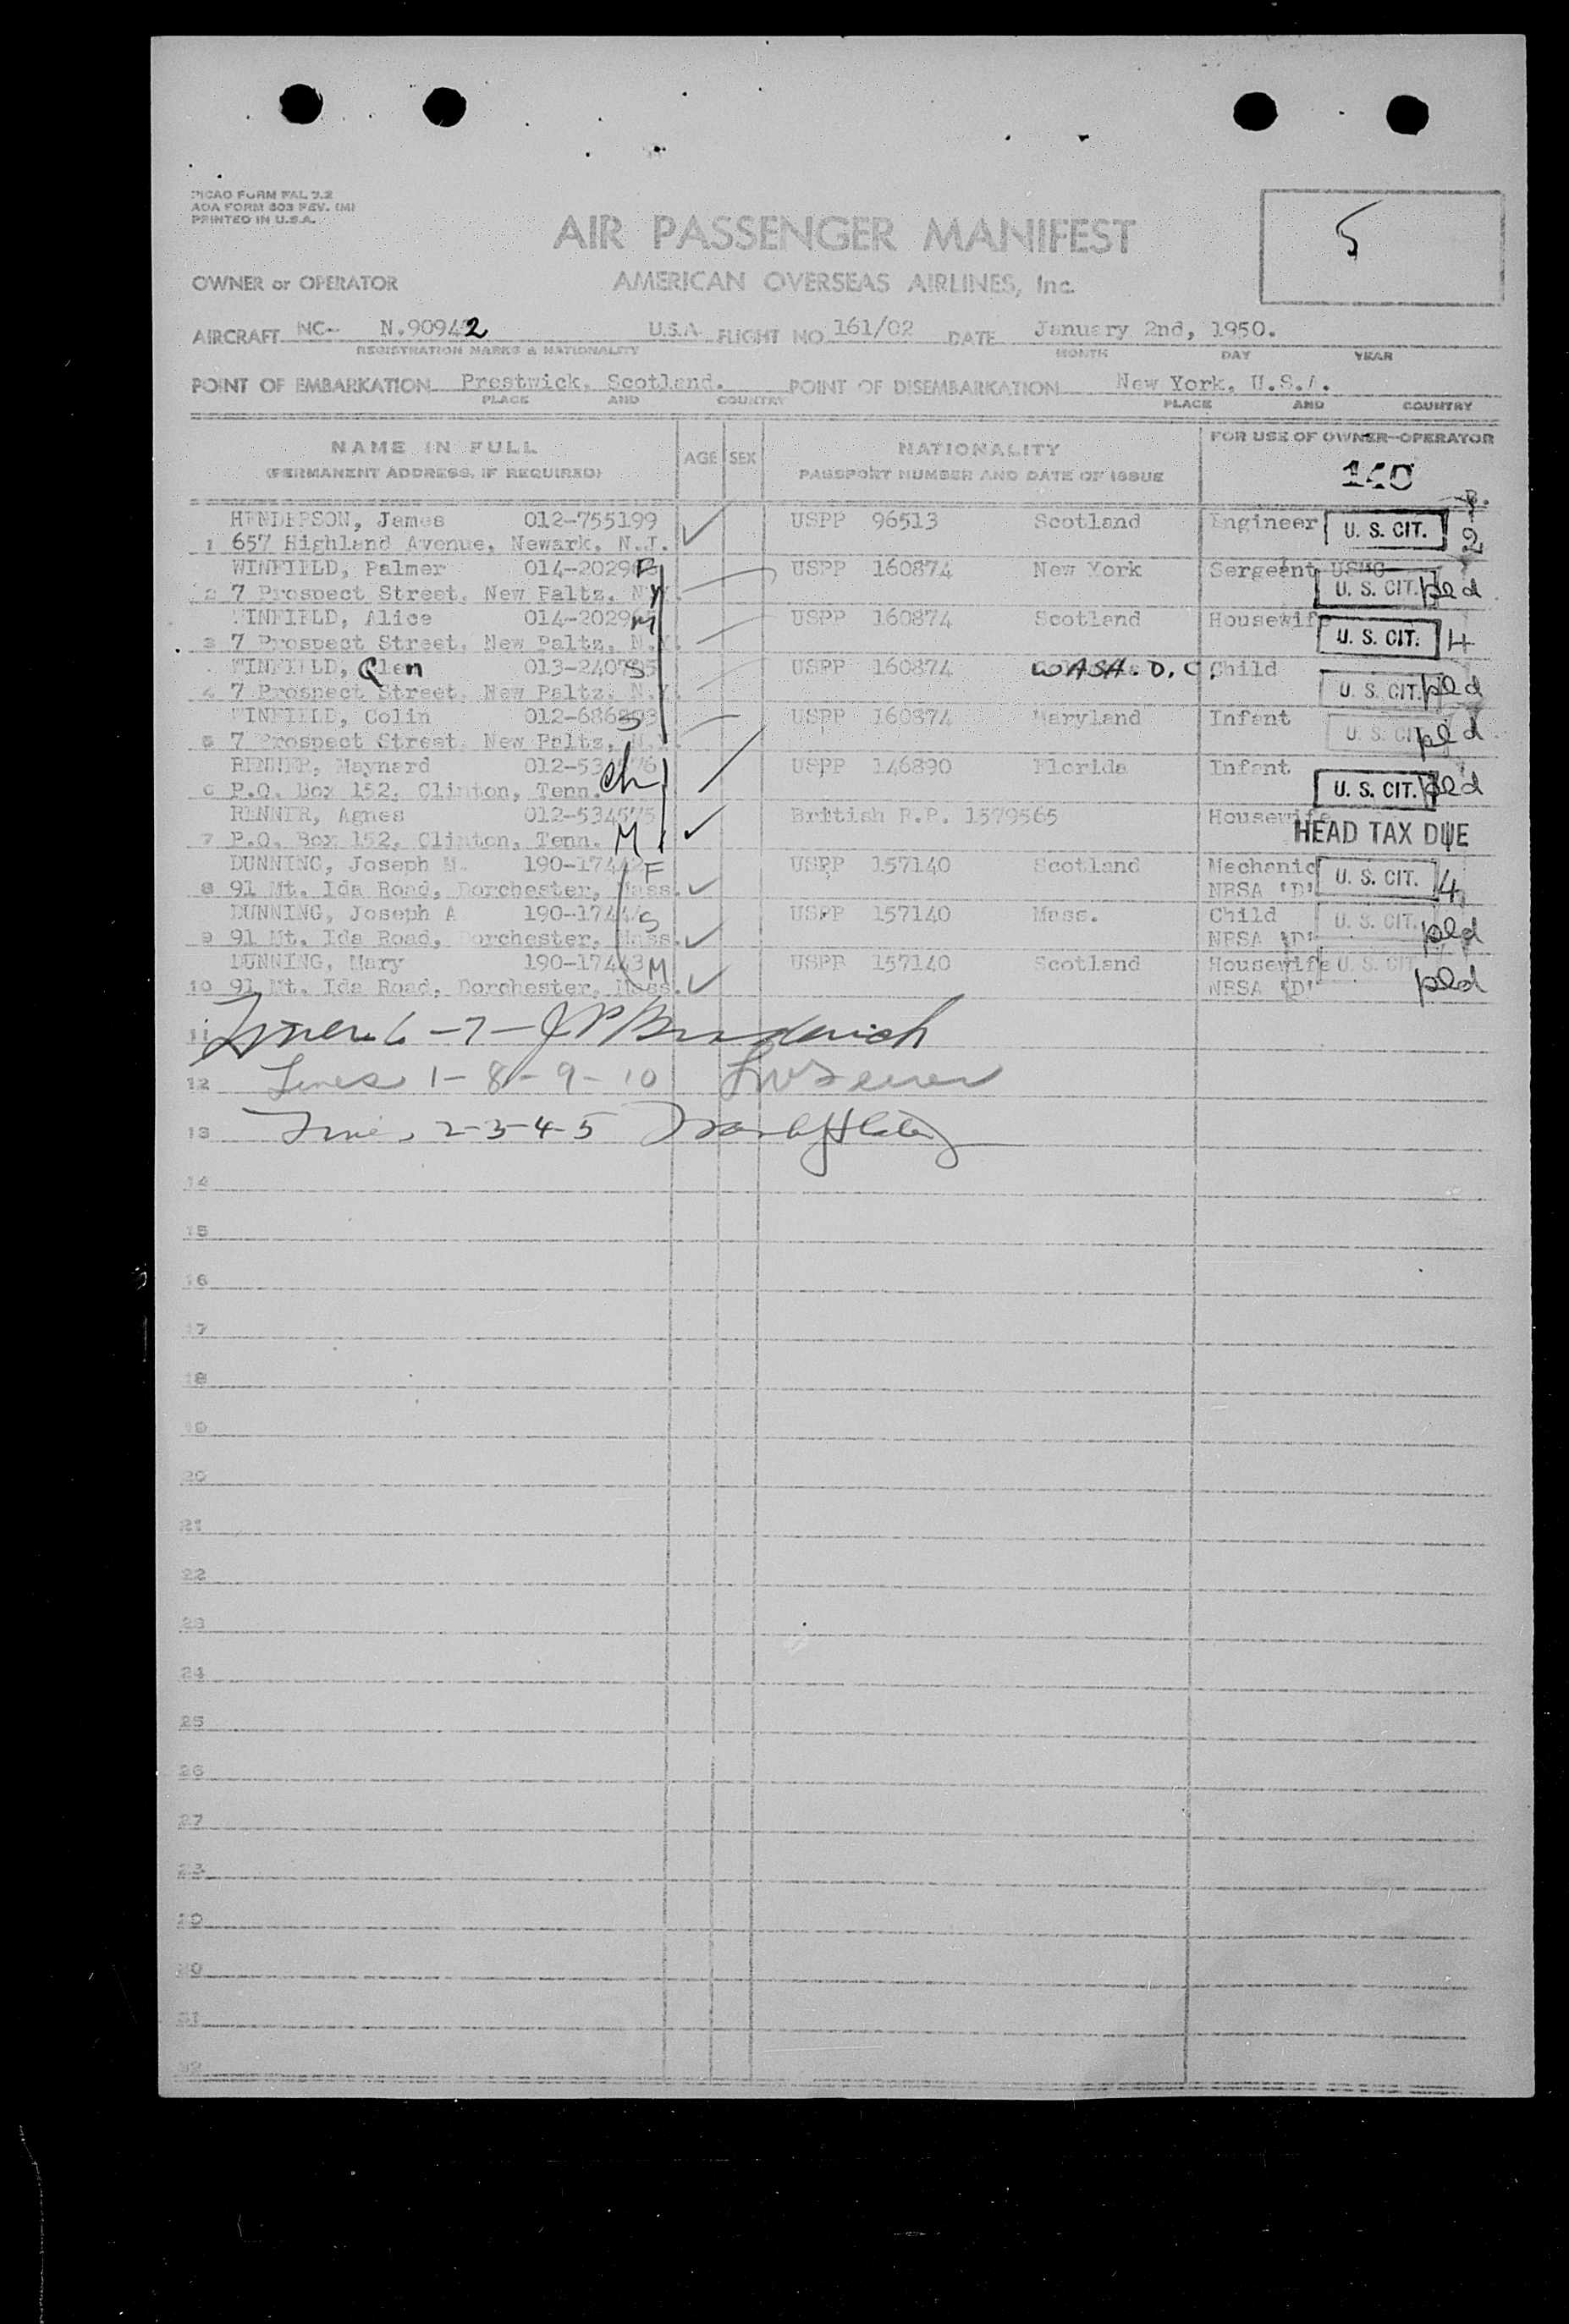 PICAO FORM PAL 3.2
AOA FORM 803 REV. (M)
PRINTED IN U.S.A.
5
AIR PASSENGER MANIFEST
OWNER or OPERATOR AMERICAN OVERSEAS AIRLINES, Inc.
AIRCRAFT NC- N.90942 U.S.A. FLIGHT NO 161/02 DATE January 2nd, 1950.
REGISTRATION MARKS & NATIONALITY MONTH DAY YEAR
POINT OF EMBARKATION Prestwick, Scotland. POINT OF DISEMBARKATION New York, U.S.A.
PLACE AND COUNTRY PLACE AND COUNTRY
NAME IN FULL AGE SEX NATIONALITY FOR USE OF OWNER-OPERATOR
(PERMANENT ADDRESS, IF REQUIRED) PASSPORT NUMBER AND DATE OF ISSUE 140
HENDERSON, James 012-755199 USPP 96513 Scotland Engineer U. S. CIT.
1 657 Highland Avenue, Newark, N.J.
WINFIELD, Palmer F USPP 160874 New York Sergeant USMC
2 7 Prospect Street, New Paltz, N.Y. U. S. CIT. pld
WINFIELD, Alice M USPP 160874 Scotland Housewife
3 7 Prospect Street, New Paltz, N.Y. U. S. CIT. 4
WINFIELD, Glen S USPP 160874 WASH. D.C. Child
4 7 Prospect Street, New Paltz, N.Y. U. S. CIT. pld
WINFIELD, Colin S USPP 160874 Maryland Infant
5 7 Prospect Street, New Paltz, N.Y. U. S. CIT. pld
RENNER, Maynard ch USPP 146890 Florida Infant
6 P.O. Box 152, Clinton, Tenn. U. S. CIT. pld
RENNER, Agnes British P.P. 1579565 Housewife
7 P.O. Box 152, Clinton, Tenn. M HEAD TAX DUE
DUNNING, Joseph M. F USPP 157140 Scotland Mechanic U. S. CIT. 4
8 91 Mt. Ida Road, Dorchester, Mass. NRSA 'D'
DUNNING, Joseph A S USPP 157140 Mass. Child U. S. CIT. pld
9 91 Mt. Ida Road, Dorchester, Mass. NRSA 'D'
DUNNING, Mary 190-17443 M USPP 157140 Scotland Housewife U. S. CIT. pld
10 91 Mt. Ida Road, Dorchester, Mass. NRSA 'D'
11 Lines 6-7-
12 Lines 1-8-9-10
13 Lines 2-3-4-5
14
15
16
17
18
19
20
21
22
23
24
25
26
27
28
29
30
31
32